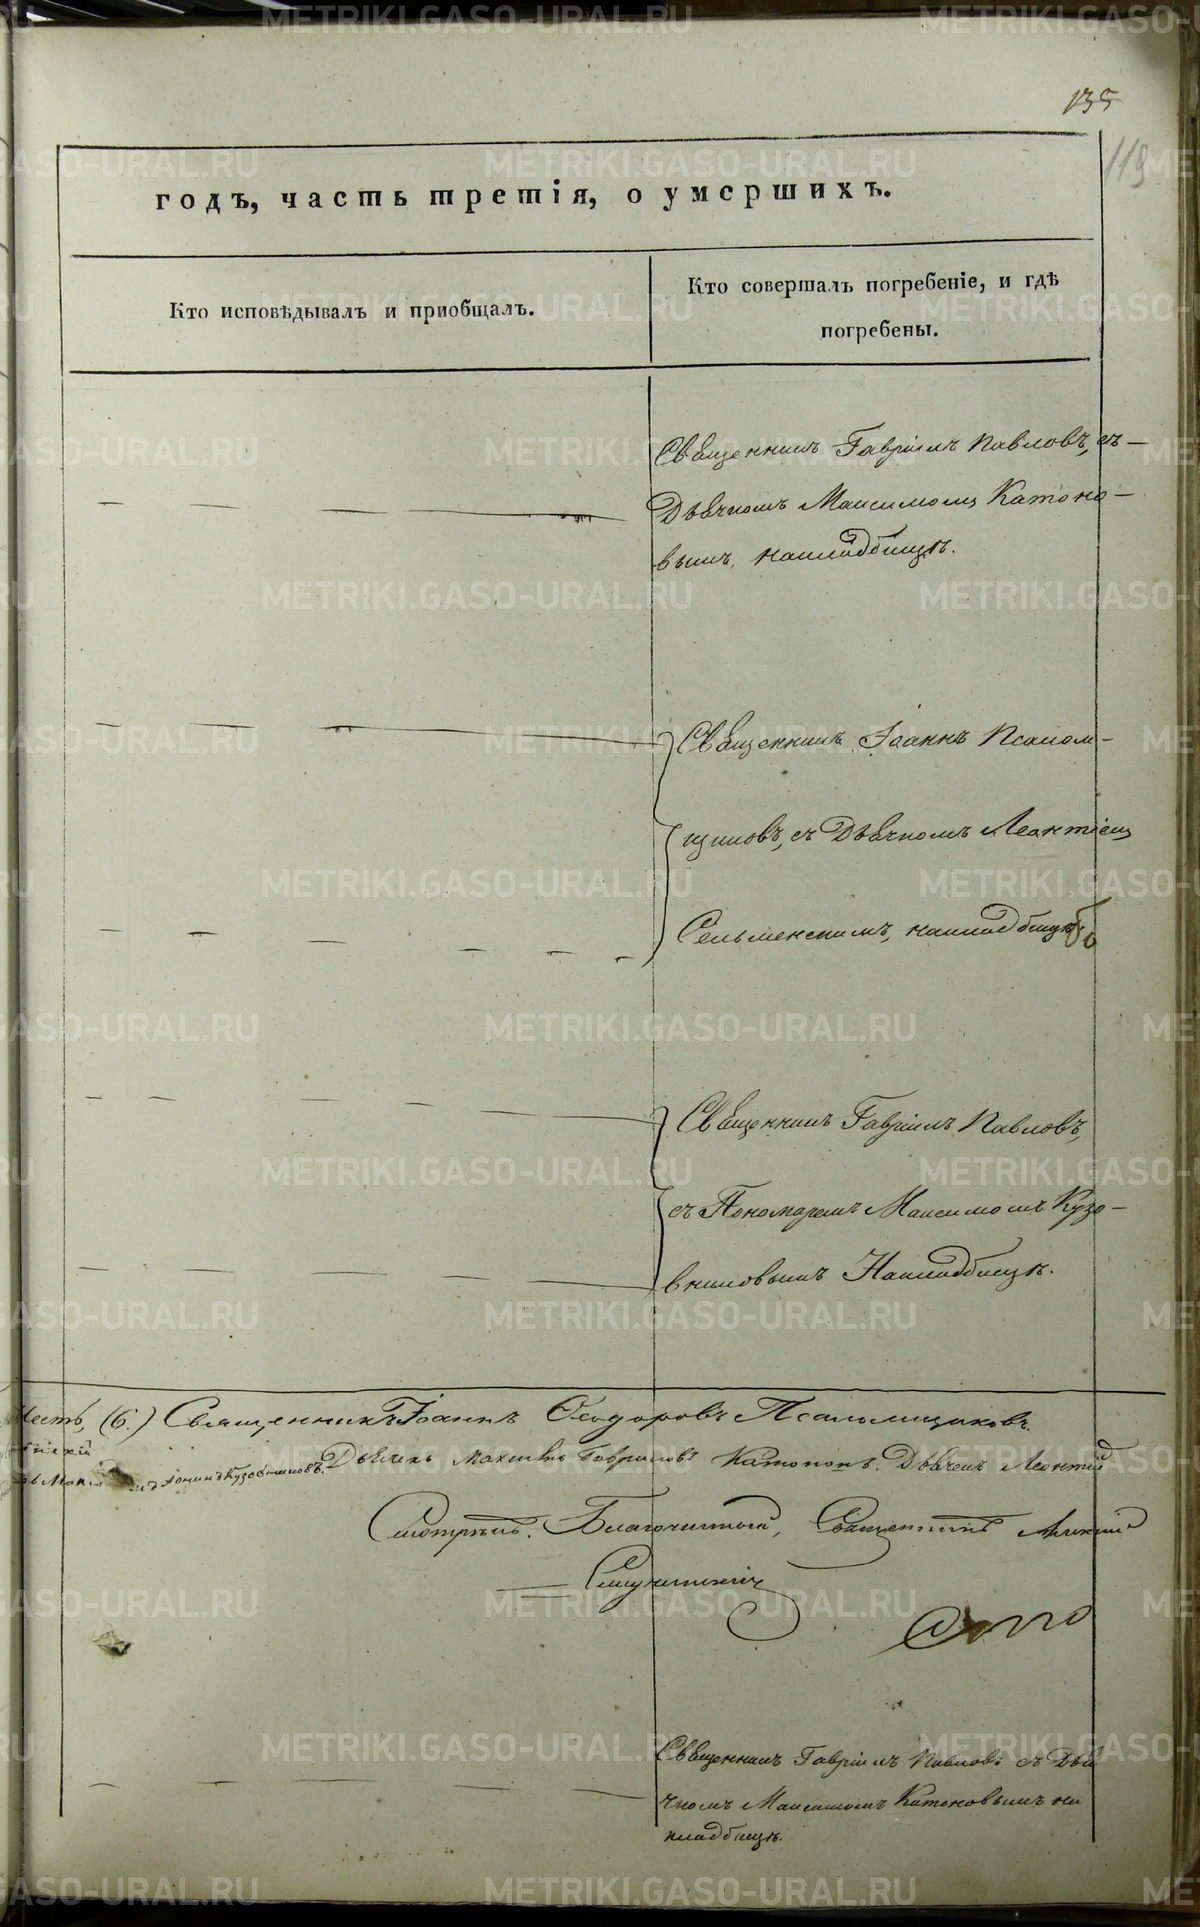 135
119
годъ, часть третія, о умершихъ.
Кто исповѣдывалъ и приобщалъ.
Кто совершалъ погребеніе, и гдѣ
погребены.
Священникъ Гавріилъ Павловъ, съ
Дьячкомъ Максимомъ Катоно-
вымъ, накладбищѣ.
Священникъ Іоаннъ Псалом-
щиковъ, съ Дьячкомъ Леонтіемъ
Сельменскимъ, накладбищѣ.
Священникъ Гавріилъ Павловъ,
съ Пономаремъ Максимомъ Кузо-
вниковымъ Накладбищѣ.
(6.) Священникъ Іоаннъ Ѳеодоровъ Псаломщиковъ.
Іонинъ Кузовниковъ. Дьячекъ Максимъ Гавриловъ Катоновъ. Дьячекъ Леонтій
Смотрѣлъ. Благочинный, Священникъ
Священникъ Гавріилъ Павловъ съ Дья
чкомъ Максимомъ Катоновымъ на
кладбищѣ.
METRIKI.GASO-URAL.RU